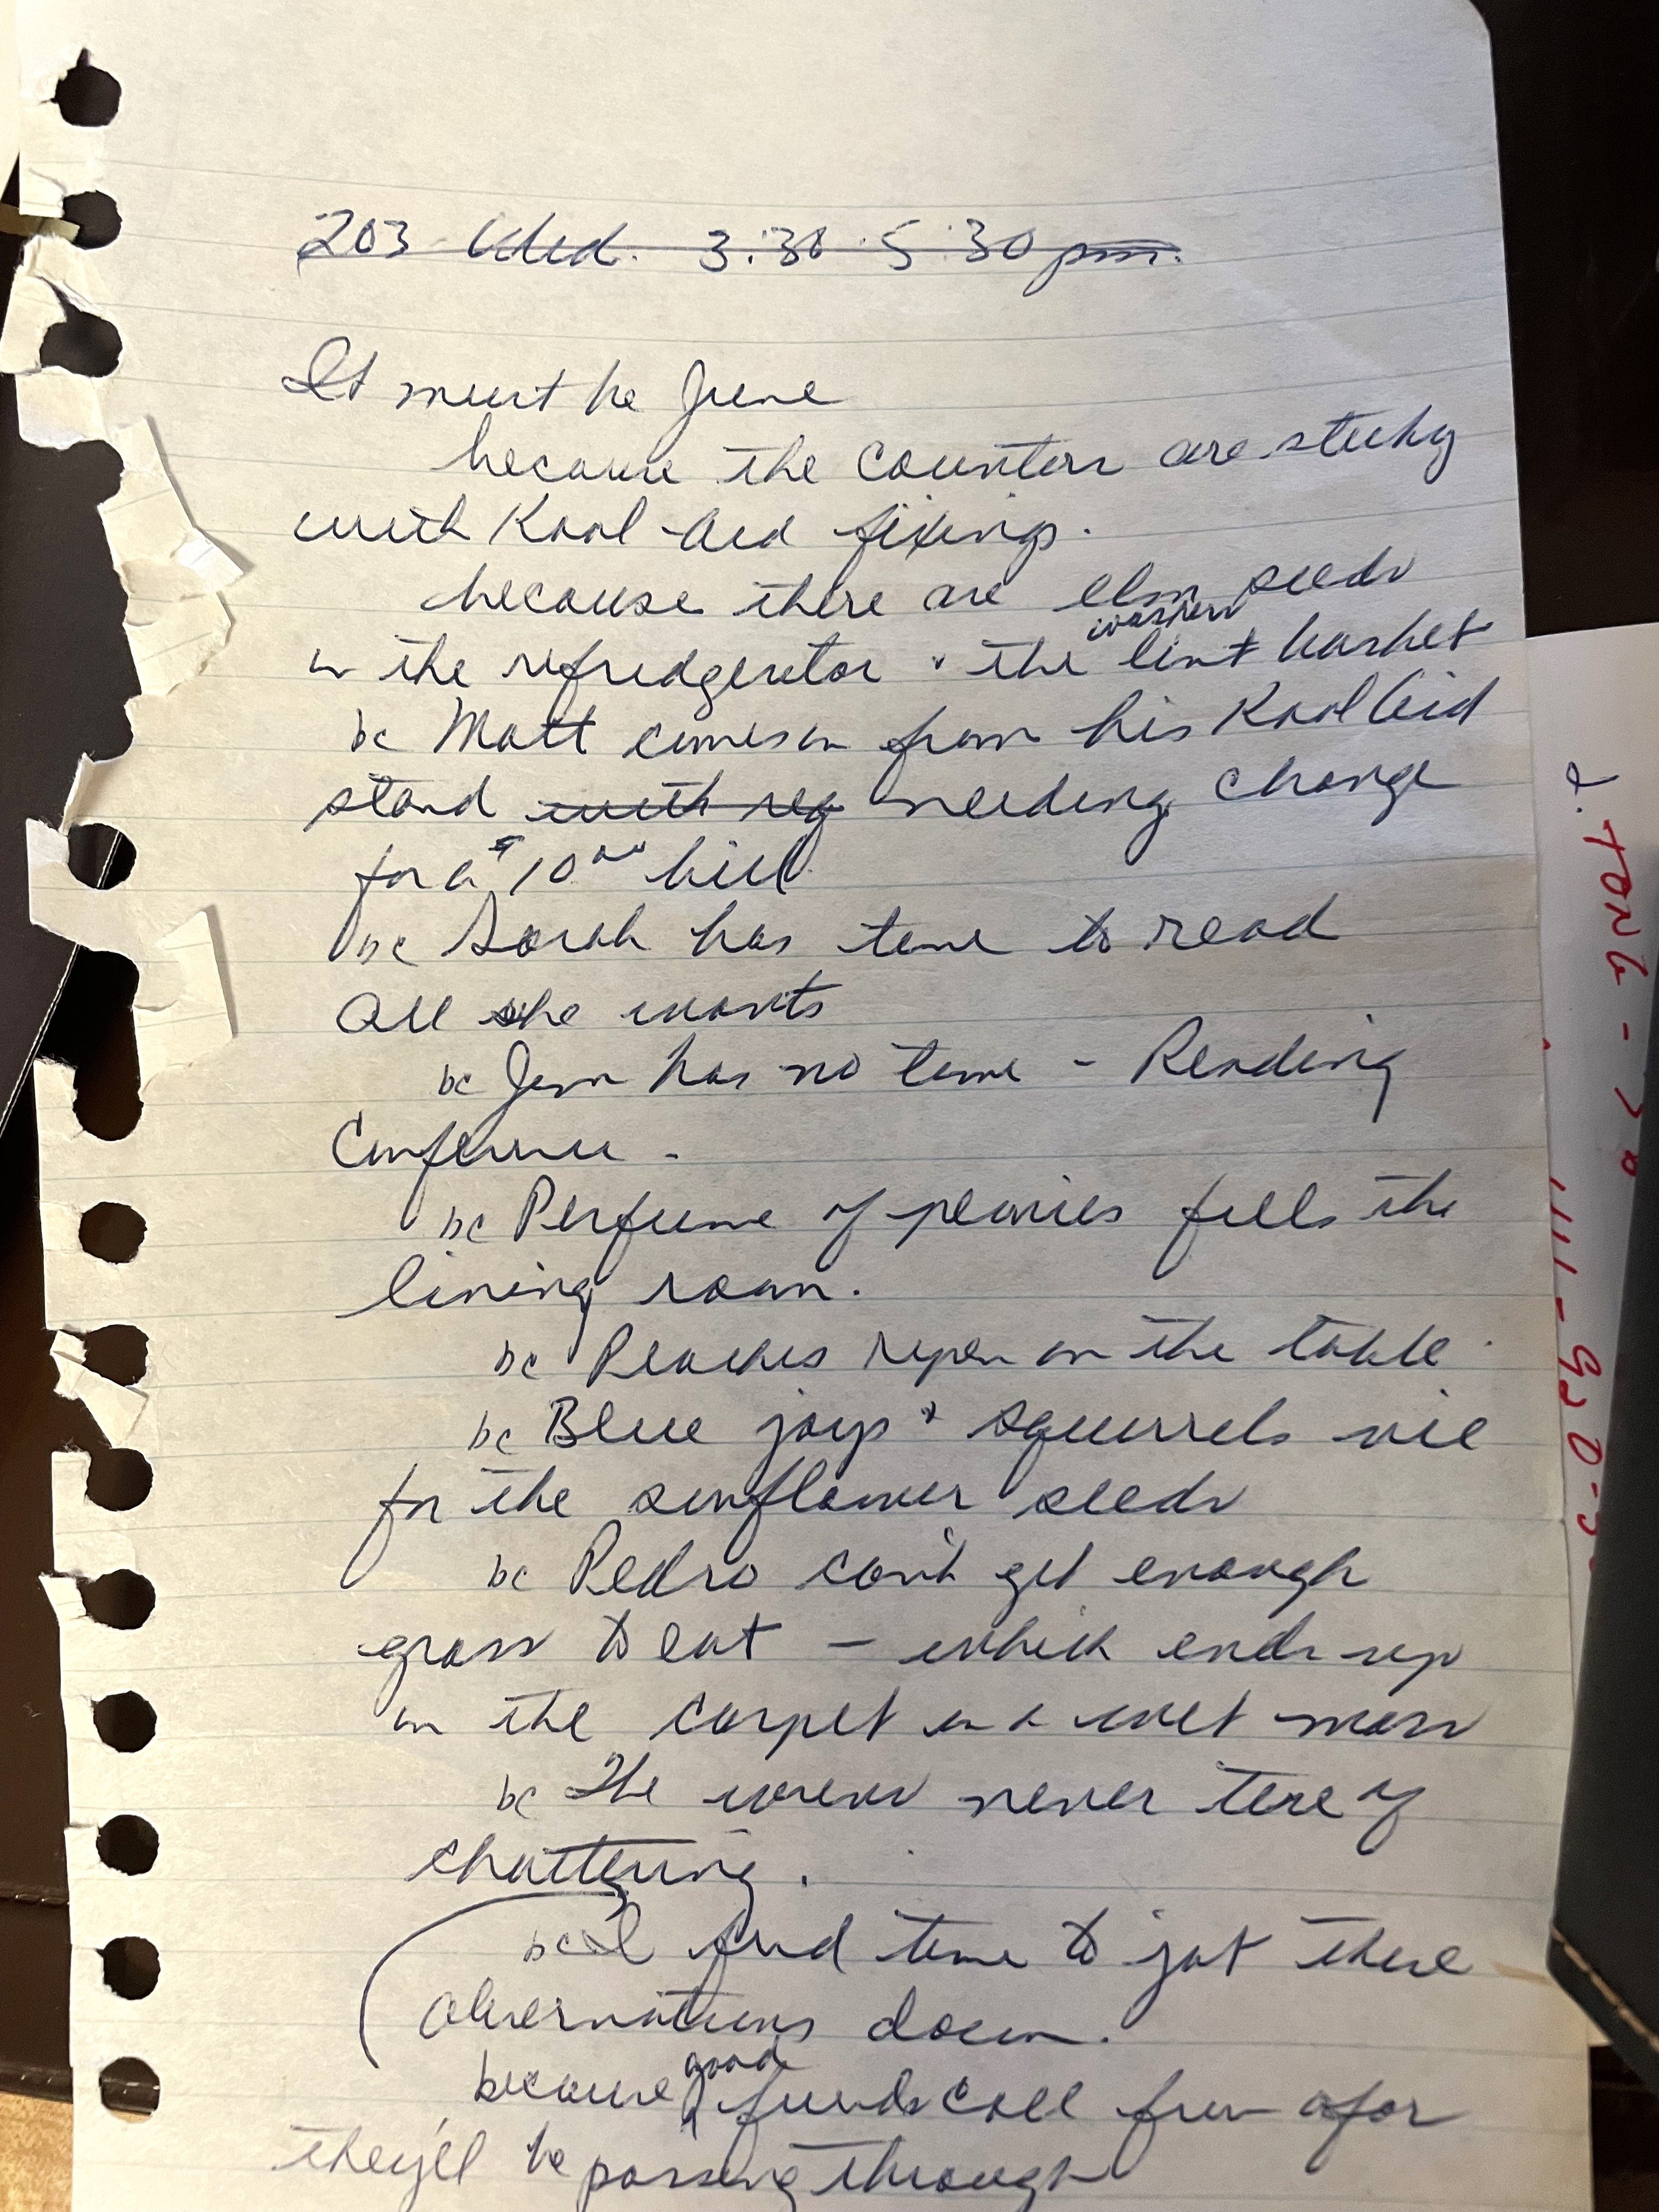 203 Wed. 3:30-5:30 pm.
It must be June
because the counters are sticky
with Kool-Aid fixings.
because there are elm seeds
in the refridgerator & the washers lint basket
bc Matt comes in from his Kool Aid
stand with reg needing change
for a $10 00 bill
bc Sarah has time to read
all she wants
bc Jenn has no time - Reading
Conference -
bc Perfume of peonies fills the
living room.
bc Peaches ripen on the table.
bc Blue jays & squirrels vie
for the sunflower seeds
bc Pedro can't get enough
grass to eat - which ends up
on the carpet in a wet mass
bc The wrens never tire of
chattering.
bc I find time to jot these
observations down.
because good friends call from afar
they'll be passing through